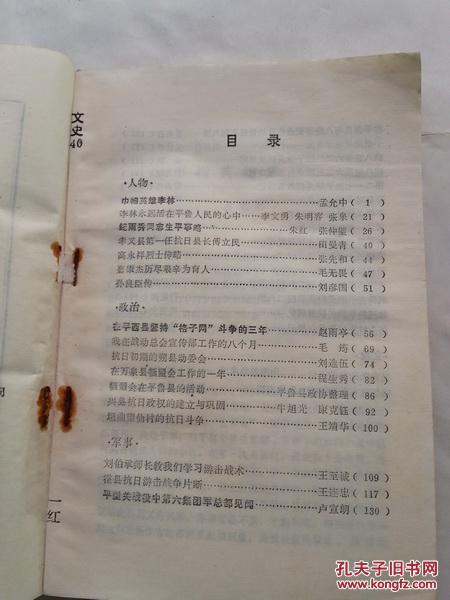 文史
40
目 录
·人物·
巾帼英雄李林………孟允中（1）
李林永远活在平鲁人民的心中……李文勇 朱明睿 张泉（21）
纪雨秀同志生平事略………朱红 张仲魁（26）
孝义县第一任抗日县长傅立民……田曼青（40）
高永祥烈士传略………张先和（44）
历尽艰辛为育人………毛无畏（47）
孙良臣传………刘彦国（51）
·政治·
在平西县坚持“格子网”斗争的三年……赵雨亭（56）
我在战动总会宣传部工作的八个月……毛 （69）
抗日初期的朔县动委会………刘连伍（74）
在万泉县牺盟会工作的一年………程生秀（82）
牺盟会在平鲁县的活动………平鲁县政协整理（86）
兴县抗日政权的建立与巩固……牛旭光 康克钰（92）
垣曲望仙村的抗日斗争………王靖华（100）
·军事·
刘伯承师长教我们学习游击战术……王至诚（109）
抗日游击战争片断………王连忠（117）
平型关战役中第六集团军总部见闻……卢宣朗（130）
一
红
司
孔夫子旧书网
KONGFZ.COM